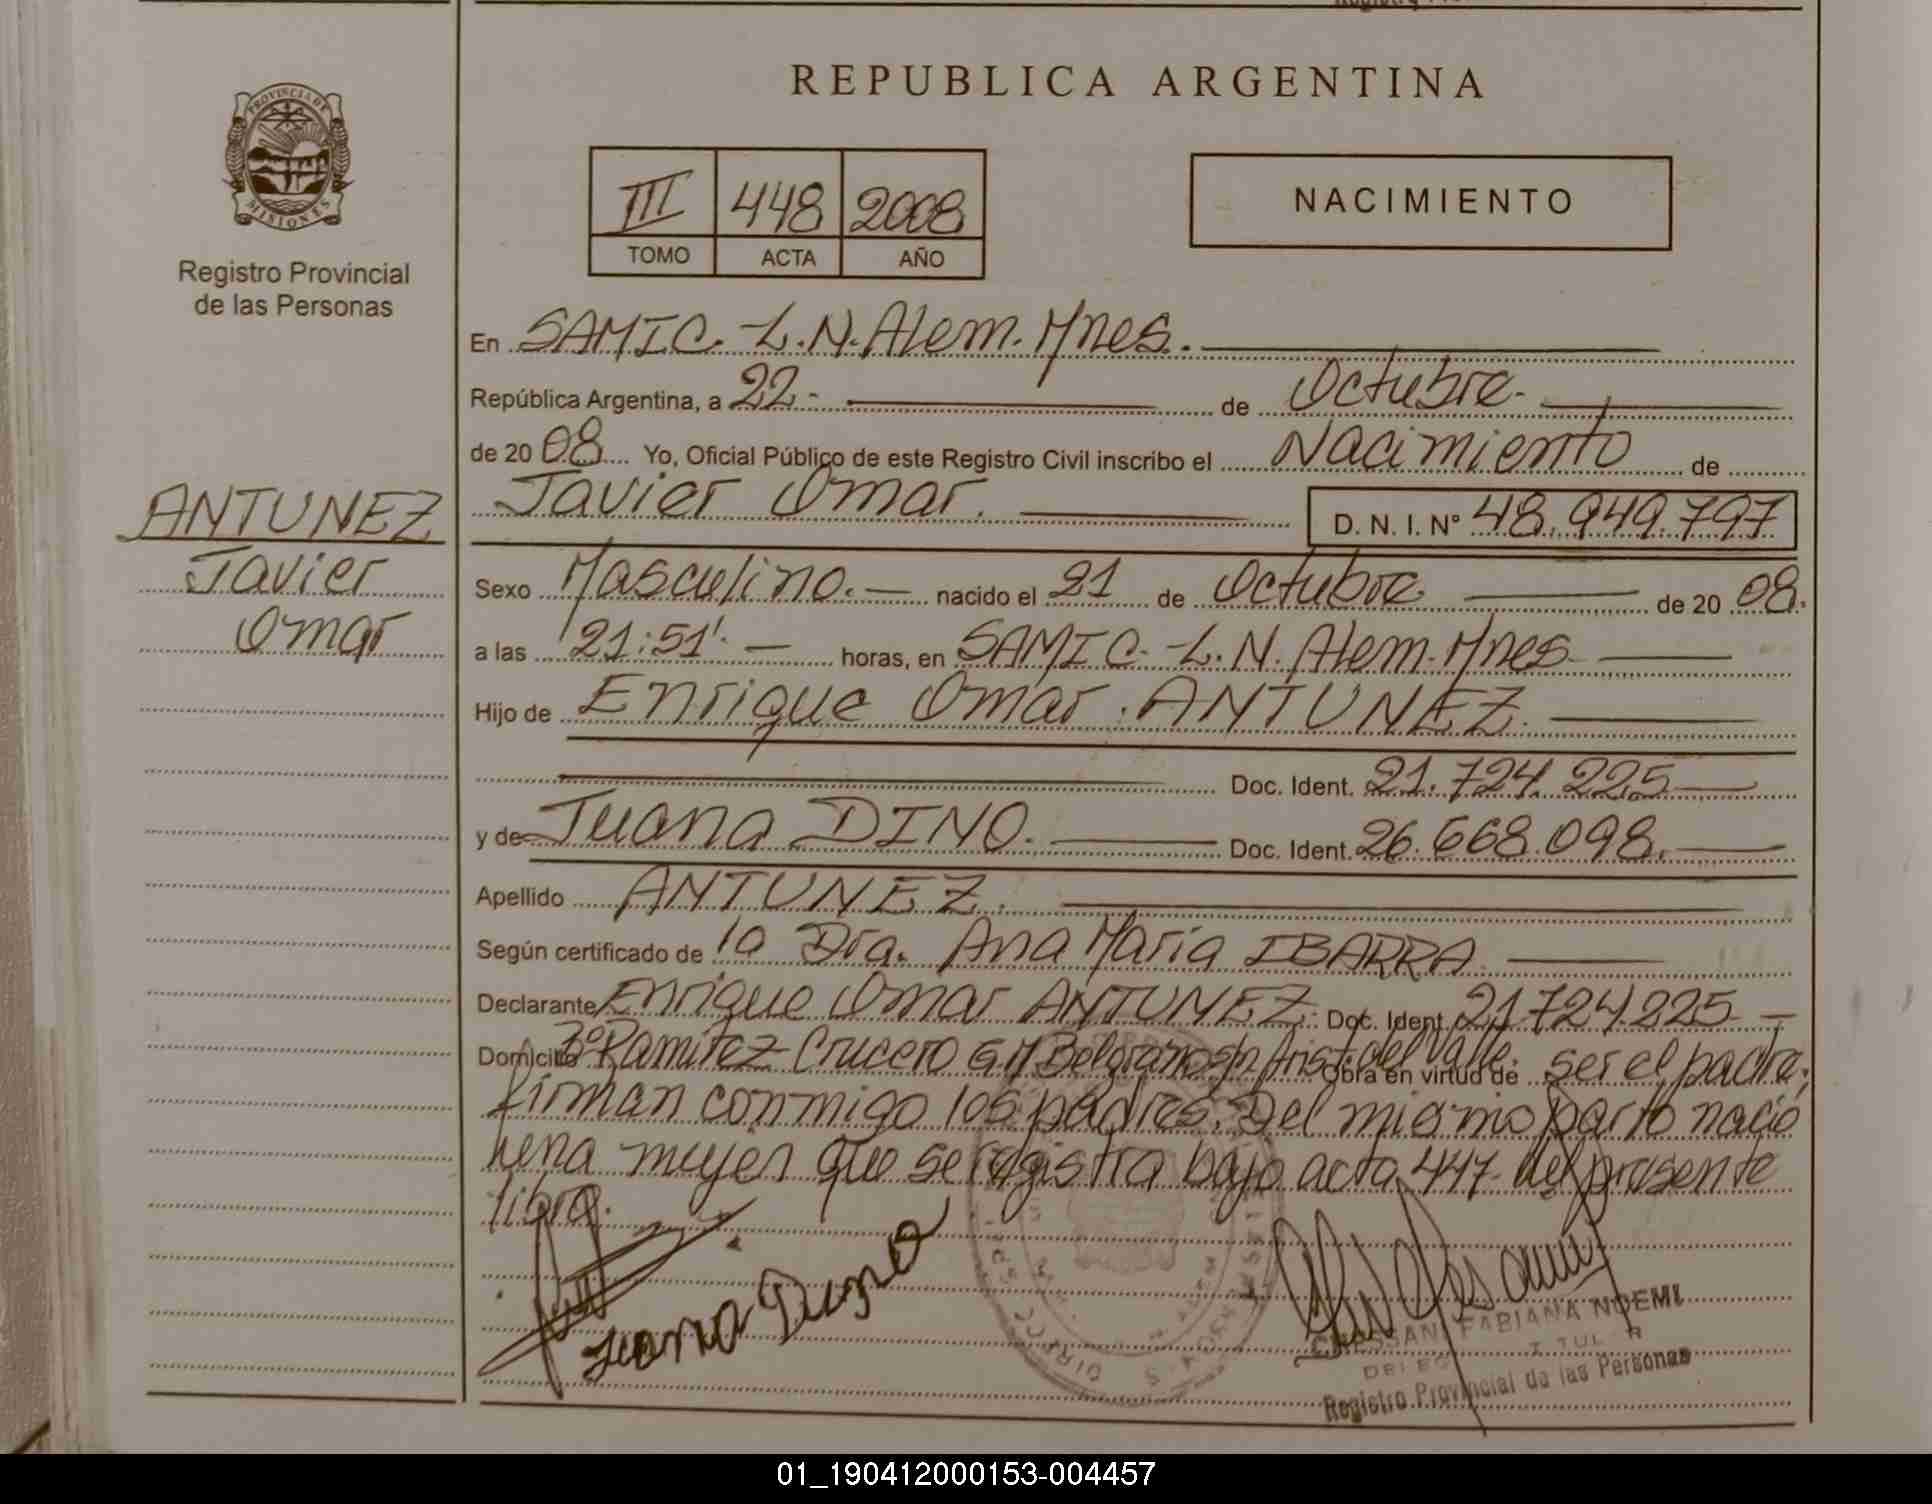 REPUBLICA ARGENTINA
PROVINCIA DE MISIONES
Registro Provincial
de las Personas
III 448 2008
TOMO ACTA AÑO
NACIMIENTO
En SAMIC.-L.N.Alem.Mnes.
República Argentina, a 22.- de Octubre.-
de 2008 Yo, Oficial Público de este Registro Civil inscribo el Nacimiento de
Javier Omar. D. N. I. Nº 48.949.797
ANTUNEZ
Javier
Omar
Sexo Masculino.- nacido el 21 de Octubre de 2008.
a las 21:51'.- horas, en SAMIC.-L.N.Alem.Mnes-
Hijo de Enrique Omar.ANTUNEZ.
Doc. Ident. 21.724.225
y de Juana DINO. Doc. Ident. 26.668.098.
Apellido ANTUNEZ.
Según certificado de la Dra. Ana María IBARRA
Declarante Enrique Omar ANTUNEZ. Doc. Ident. 21724.225-
Domicilio Bº Ramirez-Crucero G.M Belgrano s/n Arist.del Valle. Obra en virtud de ser el padre;
firman conmigo los padres. Del mismo parto nació
una mujer que se registra bajo acta 447 del presente
libro.
Juana Dino
FABIANA NOEMI
Registro Provincial de las Personas
01_190412000153-004457